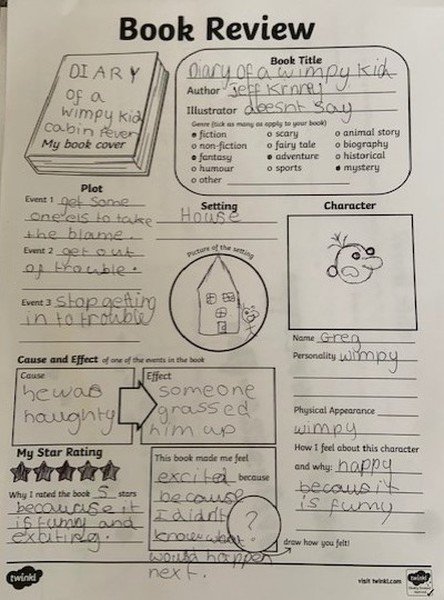 Book Review
DIARY
of a
wimpy kid
cabin fever
My book cover
Book Title
Diary of a wimpy kid
Author Jeff Kinney
Illustrator doesnt say
Genre (tick as many as apply to your book)
fiction
scary
animal story
non-fiction
fairy tale
biography
fantasy
adventure
historical
humour
sports
mystery
other
Plot
Event 1 get some
one els to take
the blame
Event 2 get out
of trouble.
Event 3 stop getting
in to trouble
Setting
House
Picture of the setting
Character
Name Greg
Personality wimpy
Physical Appearance
wimpy
How I feel about this character
and why: happy
becaus it
is funny
Cause and Effect of one of the events in the book
Cause
he was
naughty
Effect
someone
grassed
him up
My Star Rating
Why I rated the book 5 stars
becaurse it
is funny and
exciting.
This book made me feel
excited because
because
I didnt
know what
would happen
next.
?
draw how you felt!
twinkl
visit twinkl.com
twinkl